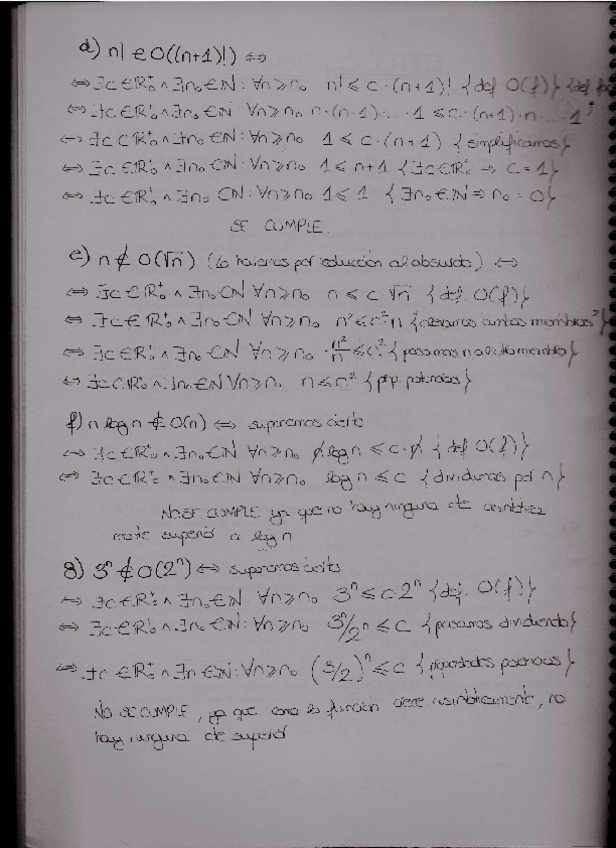 d) n! ∈ O((n+1)!) ⇔
⇔ ∃c∈ℝ₀⁺ ∧ ∃n₀∈ℕ: ∀n≥n₀ n! ≤ c·(n+1)! {def. O(f)} {def
⇔ ∃c∈ℝ₀⁺ ∧ ∃n₀∈ℕ: ∀n≥n₀ n·(n-1)·...·1 ≤ c·(n+1)·n·...·1}
⇔ ∃c∈ℝ₀⁺ ∧ ∃n₀∈ℕ: ∀n≥n₀ 1 ≤ c·(n+1) {simplificamos}
⇔ ∃c∈ℝ₀⁺ ∧ ∃n₀∈ℕ: ∀n≥n₀ 1 ≤ n+1 {∃c∈ℝ₀⁺ ⇒ c=1}
⇔ ∃c∈ℝ₀⁺ ∧ ∃n₀∈ℕ: ∀n≥n₀ 1 ≤ 1 {∃n₀∈ℕ ⇒ n₀=0}
SE CUMPLE.
e) n ∉ O(√n) (lo hacemos por reducción al absurdo) ⇔
⇔ ∃c∈ℝ₀⁺ ∧ ∃n₀∈ℕ ∀n≥n₀ n ≤ c·√n {def. O(f)}
⇔ ∃c∈ℝ₀⁺ ∧ ∃n₀∈ℕ ∀n≥n₀ n² ≤ c²·n {elevamos ambos miembros²}
⇔ ∃c∈ℝ₀⁺ ∧ ∃n₀∈ℕ ∀n≥n₀ n²/n ≤ c² {pasamos n al otro miembro}
⇔ ∃c∈ℝ₀⁺ ∧ ∃n₀∈ℕ ∀n≥n₀ n ≤ c² {prop. potencias}
f) n log n ∉ O(n) ⇔ suponemos cierto
⇔ ∃c∈ℝ₀⁺ ∧ ∃n₀∈ℕ ∀n≥n₀ n log n ≤ c·n {def O(f)}
⇔ ∃c∈ℝ₀⁺ ∧ ∃n₀∈ℕ ∀n≥n₀ log n ≤ c {dividimos por n}
NO SE CUMPLE ya que no hay ninguna cte asintótica
mente superior a log n
g) 3ⁿ ∉ O(2ⁿ) ⇔ suponemos cierto
⇔ ∃c∈ℝ₀⁺ ∧ ∃n₀∈ℕ: ∀n≥n₀ 3ⁿ ≤ c·2ⁿ {def. O(f)}
⇔ ∃c∈ℝ₀⁺ ∧ ∃n₀∈ℕ: ∀n≥n₀ 3ⁿ/2ⁿ ≤ c {pasamos dividiendo}
⇔ ∃c∈ℝ₀⁺ ∧ ∃n∈ℕ: ∀n≥n₀ (3/2)ⁿ ≤ c {propiedades potencias}
NO SE CUMPLE, ya que como la función crece asintóticamente, no
hay ninguna cte superior